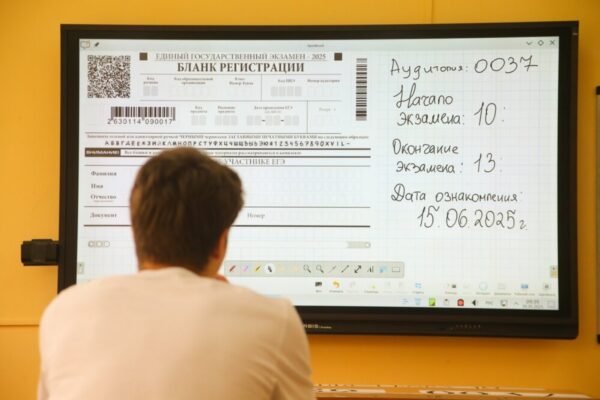 ЕДИНЫЙ ГОСУДАРСТВЕННЫЙ ЭКЗАМЕН - 2025
БЛАНК РЕГИСТРАЦИИ
Код региона
Код образовательной организации
Класс
Номер Буква
Код ППЭ
Номер аудитории
2630114 090017
Код предмета
Название предмета
Дата проведения ЕГЭ
АБВГДЕЁЖЗИЙКЛМНОПРСТУФХЦЧШЩЪЫЬЭЮЯ1234567890XVIL-
ВНИМАНИЕ!
УЧАСТНИКЕ ЕГЭ
Фамилия
Имя
Отчество
Документ
Номер
Аудитория: 0037
Начало
экзамена: 10:
Окончание
экзамена: 13:
Дата ознакомления:
15.06.2025г.